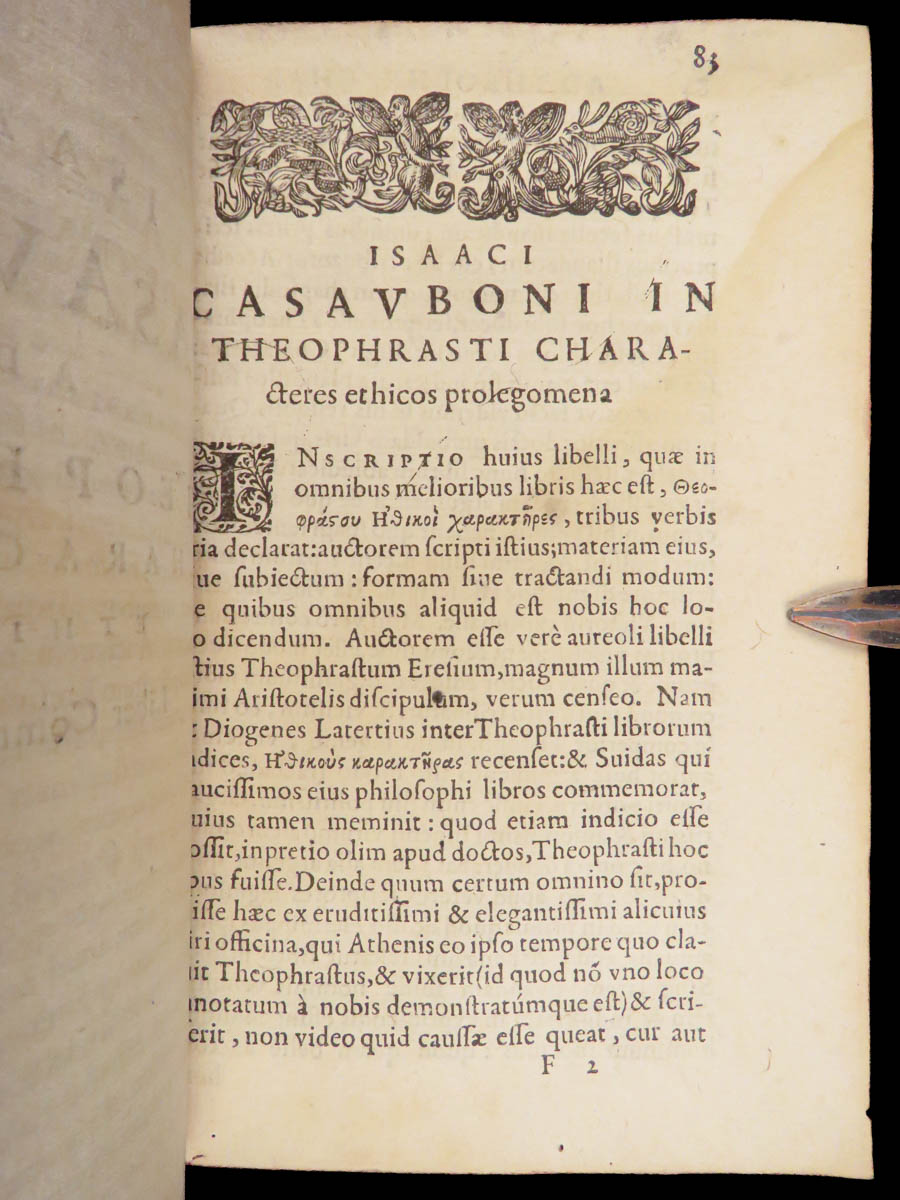 83
ISAACI
CASAVBONI IN
THEOPHRASTI CHARA-
cteres ethicos prolegomena
INSCRIPTIO huius libelli, quæ in
omnibus melioribus libris hæc eſt, Θεο-
φράςου Ηθικοὶ χαρακτῆρες, tribus verbis
ria declarat:auctorem ſcripti iſtius;materiam eius,
ue ſubiectum : formam ſiue tractandi modum:
e quibus omnibus aliquid eſt nobis hoc lo-
o dicendum. Auctorem eſſe verè aureoli libelli
tius Theophraſtum Ereſium,magnum illum ma-
imi Ariſtotelis diſcipulum, verum cenſeo. Nam
Diogenes Latertius interTheophraſti librorum
dices, Ηθικοὺς καρακτῆρας recenſet:& Suidas qui
auciſſimos eius philoſophi libros commemorat,
uius tamen meminit : quod etiam indicio eſſe
oſſit,inpretio olim apud doctos,Theophraſti hoc
pus fuiſſe.Deinde quum certum omnino ſit,pro-
iſſe hæc ex eruditiſſimi & elegantiſſimi alicuius
iri officina,qui Athenis eo ipſo tempore quo cla-
uit Theophraſtus,& vixerit(id quod nō vno loco
nnotatum à nobis demonſtratúmque eſt)& ſcri-
erit, non video quid cauſſæ eſſe queat, cur aut
F 2